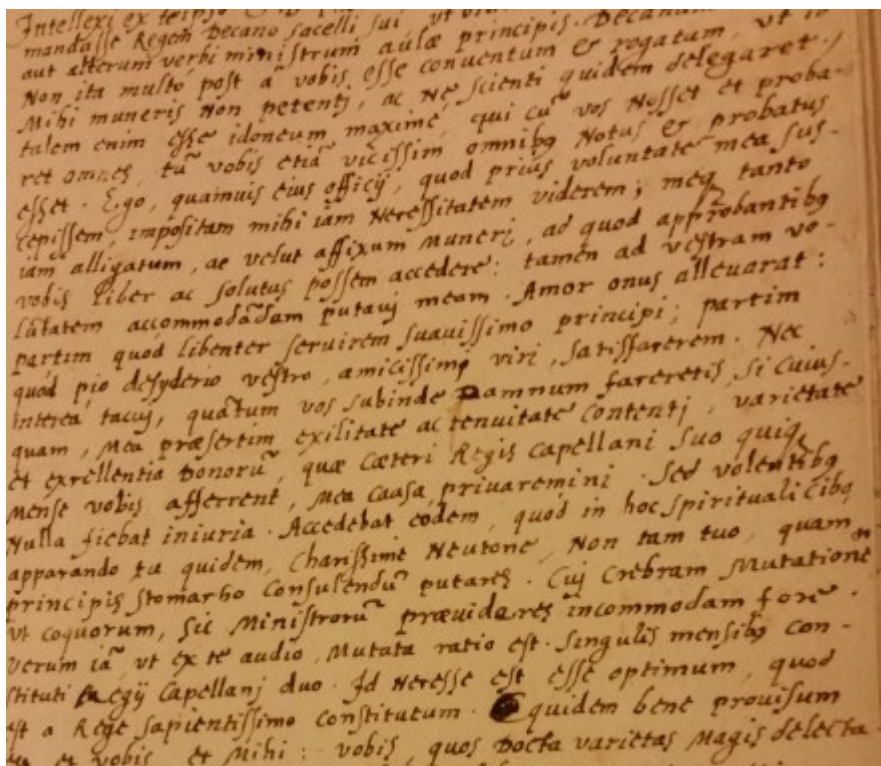 Intellexi ex teipso
mandasse Regem Decano sacelli sui ut
aut alterum verbi ministrum aulæ principis. Decanum
Non ita multò post ā vobis esse conventum & rogatum, vt
Mihi muneris Non petentj, ac Ne scienti quidem delegaret.
talem enim esse idoneum maximè, qui cū vos Nosset et proba-
ret omnes, tū vobis etiā vicissim omnibꝫ Notus & probatus
esset. Ego, quamuis eius officij, quod prius voluntate mea sus-
cepissem, impositam mihi iam Necessitatem viderem; meqꝫ tanto
iam alligatum, ac velut affixum Munerj, ad quod approbantibꝫ
vobis liber ac solutus possem accedere: tamen ad vestram vo-
lūtatem accommodādam putavj meam. Amor onus alleuarat:
partim quod libenter servirem suavissimo principi; partim
quod pio desyderio vestro, amicissimj viri, satisfacerem. Nec
interea tacuj, quātum vos subinde Damnum faceretis, si cuius-
quam, Mea præsertim exilitate ac tenuitate contentj, varietate
et excellentia Donorū, quæ Cæteri Regis Capellani suo quiqꝫ
Mense vobis afferrent, Mea causa privaremini. Sed volentibꝫ
Nulla fiebat iniuria. Accedebat eòdem, quòd in hoc spirituali cibo
apparando tu quidem, Charissime Neutone, Non tam tuo, quam
principis stomacho consulendū putares. Cuj Crebram Mutationē
vt coquorum, sic Ministrorū prævideres incommodam fore.
Verum iā, vt ex te audio, Mutata ratio est. Singulis mensibꝫ con-
stituti Regij Capellanj duo. Id Necesse est esse optimum, quod
est a Rege sapientissimo constitutum. Equidem bene provisum
et vobis, et Mihi: vobis, quos Docta varietas Magis delecta